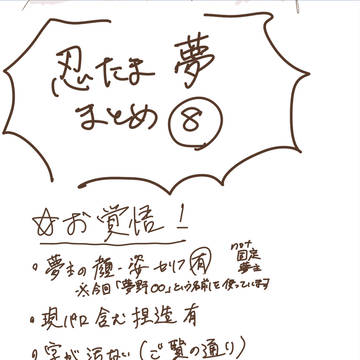 忍たま 夢
まとめ ⑧
☆お覚悟!
・夢主の顔・姿 セリフ 有
not
固定
夢主
※今回「夢野〇〇」という名前を使っています
・現パロ含む捏造有
・字が汚ない(ご覧の通り)